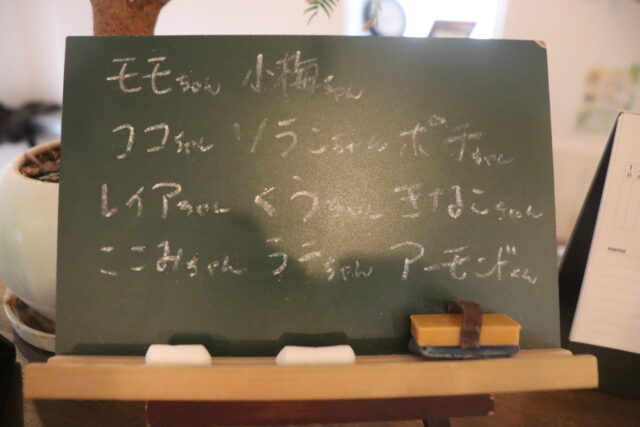 モモちゃん 小梅ちゃん
ココちゃん ソランちゃん ポチちゃん
レイアちゃん くうちゃん きなこちゃん
ここみちゃん ララちゃん アーモンドくん
memo